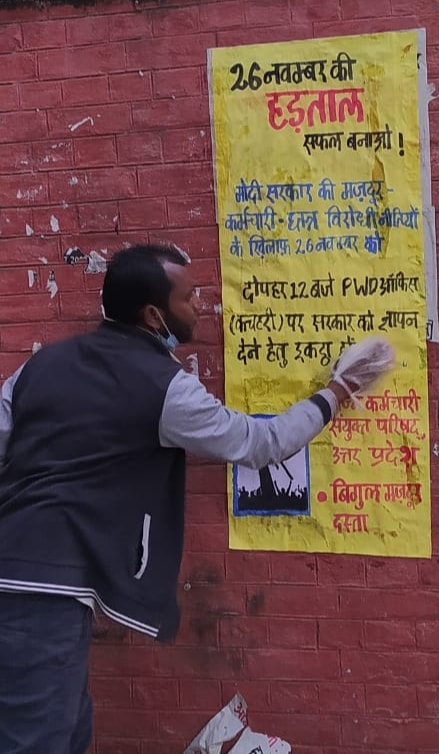 26 नवम्बर की
हड़ताल
सफल बनाओ !
मोदी सरकार की मज़दूर -
कर्मचारी - छात्र विरोधी नीतियों
के खिलाफ़ 26 नवम्बर को
दोपहर 12 बजे PWD ऑफिस
(कचहरी) पर सरकार को ज्ञापन
देने हेतु इकट्ठा
कर्मचारी
संयुक्त परिषद्,
उत्तर प्रदेश
• बिगुल मज़दूर
दस्ता